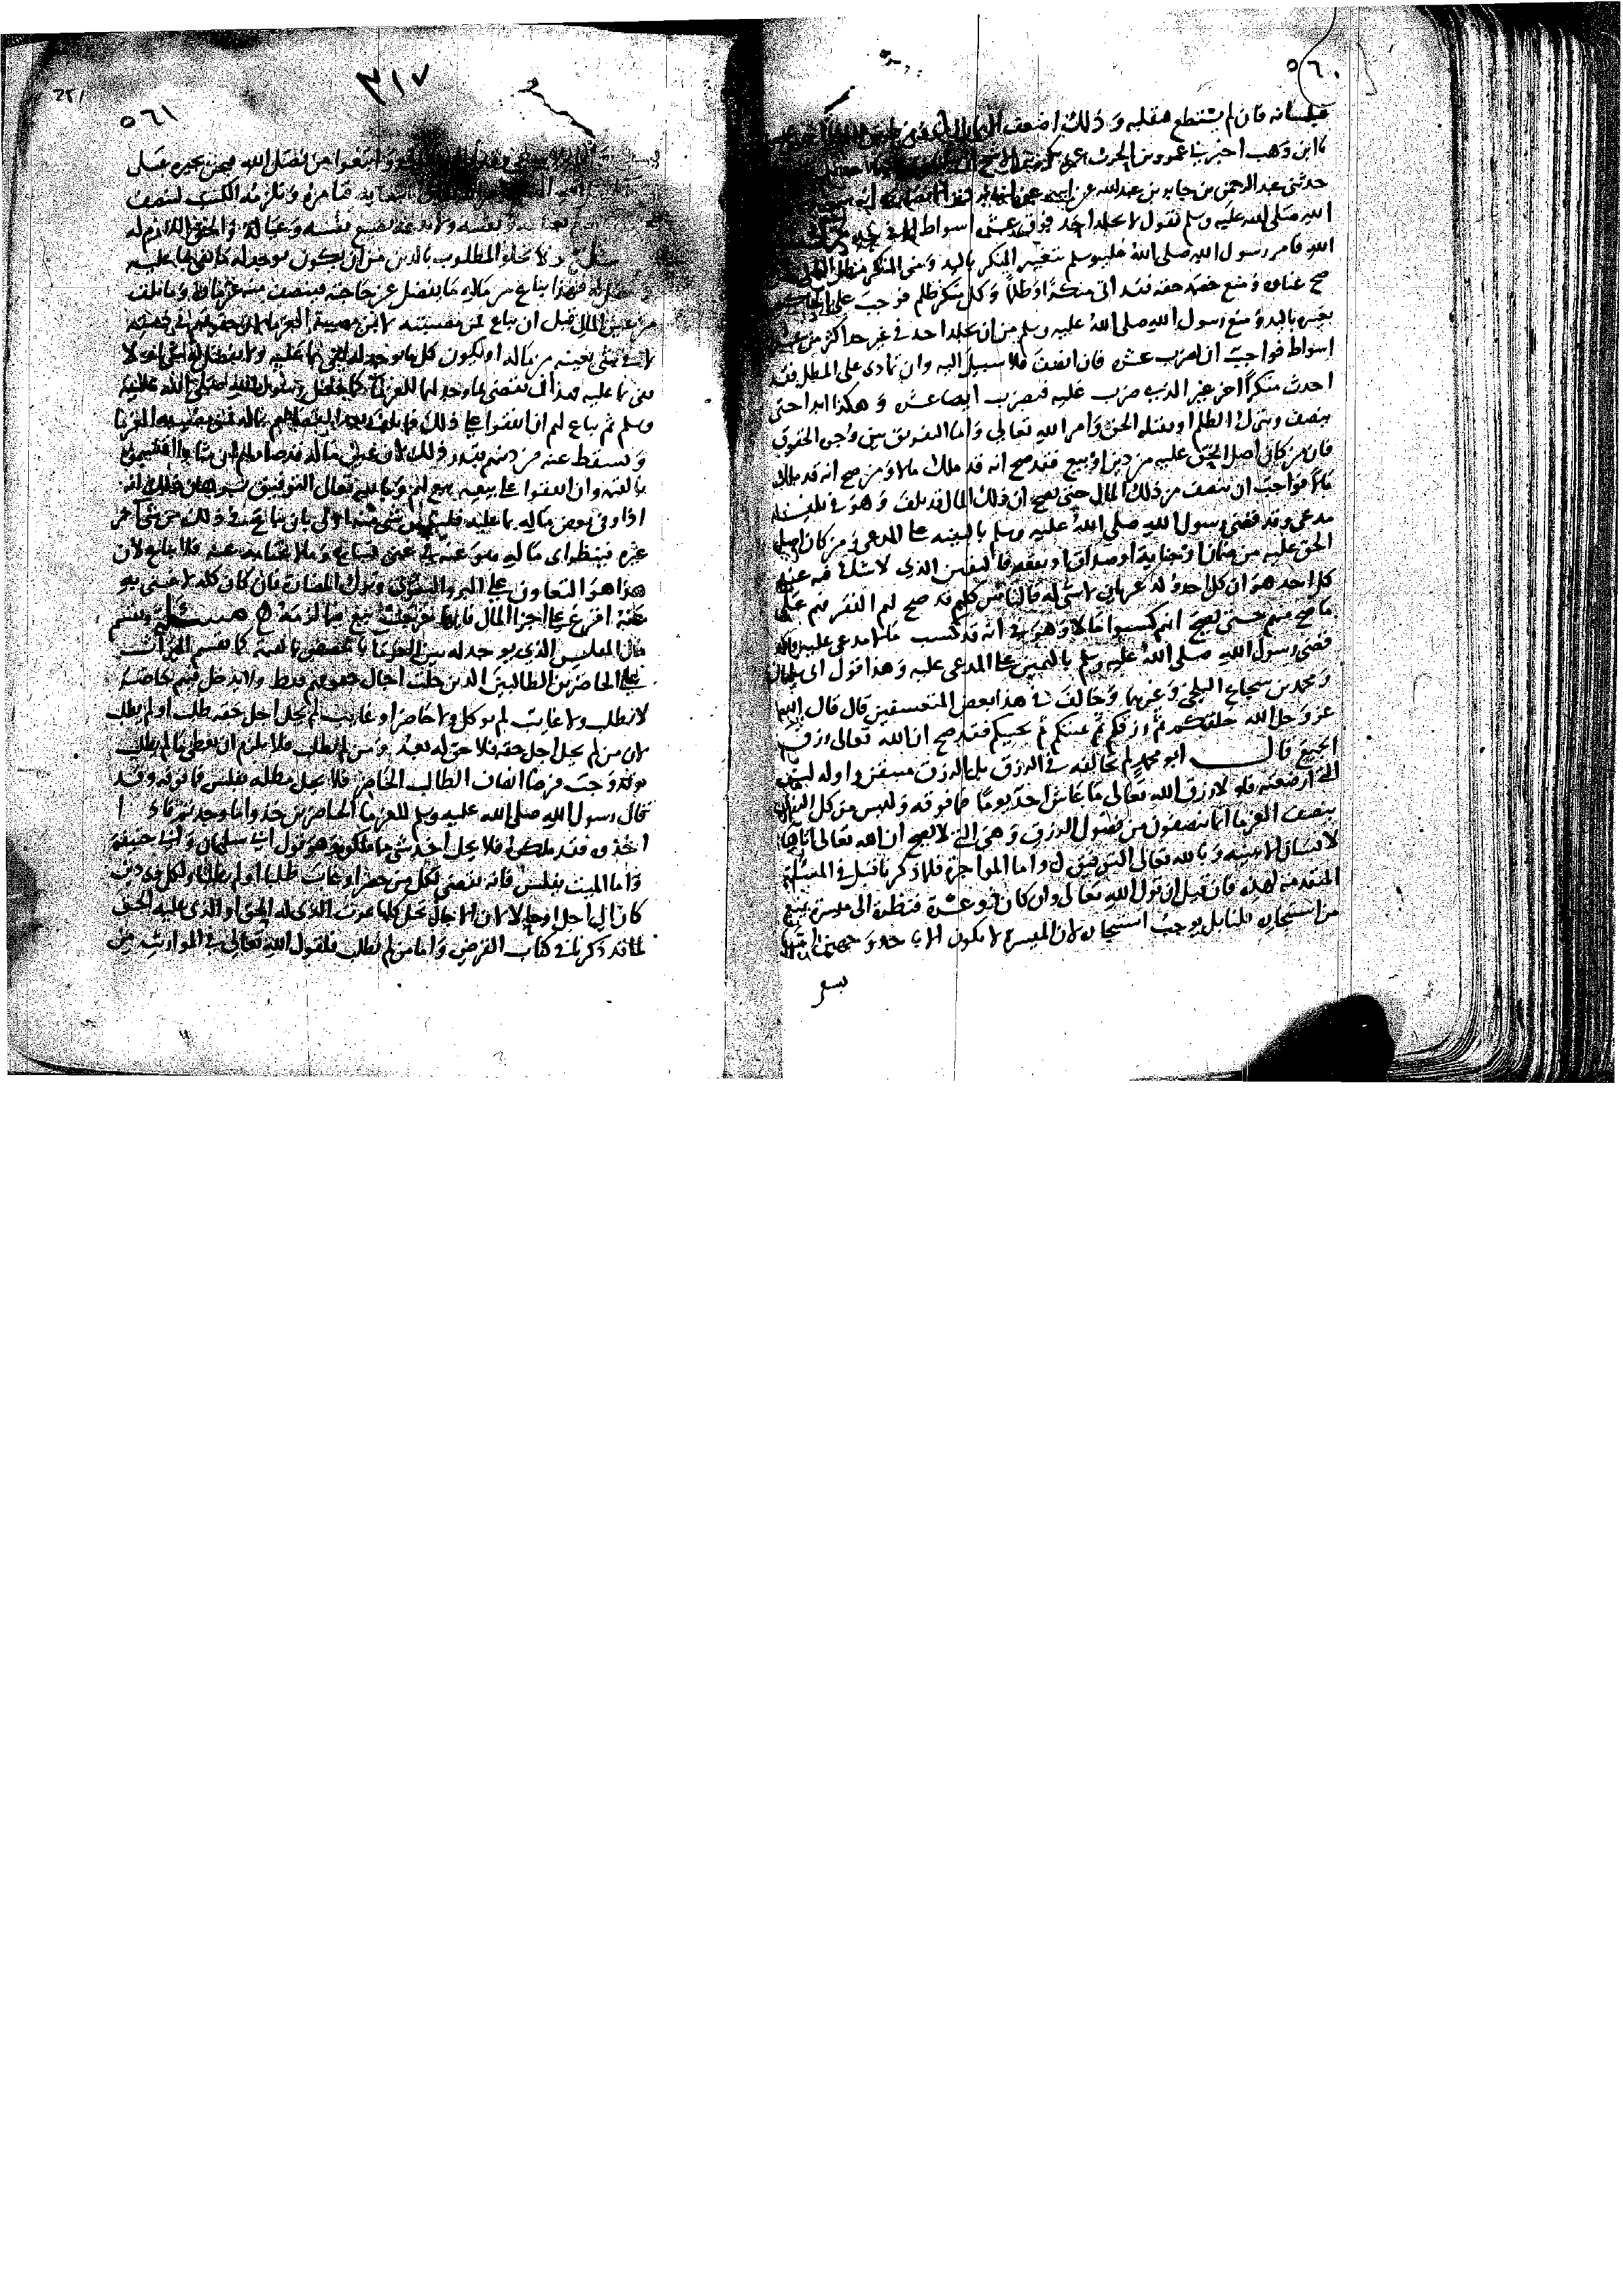 ٥٦٠
فبلسانه فان لم يستطع فبقلبه وذلك اضعف
نا ابن وهب اخبرنا عمرو بن الحرث عن بكير بن الاشج
حدثني عبد الرحمن بن جابر بن عبد الله عن ابيه
الله صلى الله عليه وسلم يقول لا يجلد احد فوق عشرة اسواط الا في
الله فامر رسول الله صلى الله عليه وسلم بتغيير المنكر باليد ومن المنكر مطل الغني
صح غناه ومنع خصمه حقه فقد اتى منكرا وظلما وكل منكر ظلم فوجب على الحاكم
تغييره باليد ومنع رسول الله صلى الله عليه وسلم من ان يجلد احد في غير حد اكثر من عشرة
اسواط فواجب ان يضرب عشرة فان انصف فلا سبيل اليه وان تمادى على المطل فقد
احدث منكرا اخر غير الذي ضرب عليه فيضرب ايضا عشرة وهكذا ابدا حتى
ينصف ويترك الظلم او يقتله الحق وامر الله تعالى واما التفريق بين وجوه الحقوق
فان من كان اصل الحق عليه من دين او بيع فقد صح انه قد ملك مالا ومن صح انه قد ملك
مالا فواجب ان ينصف من ذلك المال حتى يصح ان ذلك المال قد تلف وهو في تلفه
مدعي وقد قضى رسول الله صلى الله عليه وسلم بالبينة على المدعي ومن كان اصل
الحق عليه من ضمان او جناية او صداق او نفقة فاليقين الذي لا شك فيه عند
كل احد هو ان كل احد ولد عريان لا شي له فالناس كلهم قد صح لهم الفقر فهم على
ما صح منهم حتى يصح انهم كسبوا مالا وهو في انه قد كسب مالا مدعى عليه وقد
قضى رسول الله صلى الله عليه وسلم باليمين على المدعى عليه وهذا قول ابي سليمان
ومحمد بن شجاع البلخي وغيرهما وخالف في هذا بعض المتعسفين قال قال الله
عز وجل الله خلقكم ثم رزقكم ثم يميتكم ثم يحييكم فقد صح ان الله تعالى رزق
الجميع قال ابو محمد لم نخالفه في الرزق بل الرزق متيقن واوله لبن
التي ارضعته فلو لا رزق الله تعالى ما عاش احد يوما فما فوقه وليس من كل الرزق
ينصف الغرما انما ينصفون من فضول الرزق وهي التي لا يصح ان الله تعالى اتاها
لانسان الا ببينة وبالله تعالى التوفيق واما المواجرة فلما ذكرنا قبل في المسئلة
المتقدمة لهذه فان قيل ان قول الله تعالى وان كان ذو عسرة فنظرة الى ميسرة يمنع
من استيجاره قلنا بل يوجب استيجاره لان الميسرة لا تكون الا باحد وجهين اما
بسعي
٥٦١
٣١٧
وابتغوا من فضل الله فنحن نجبره على
فنامره ونلزمه الكسب لينصف
نفسه ولا ندعه يضيع نفسه وعياله والحق اللازم له
ولا يخلو المطلوب بالدين من ان يكون يوجد له ما يفي بما عليه
فهذا يباع من ماله ما يفضل عن حاجته فينصف منه غرماؤه وما تلف
من عين المال قبل ان يباع فمن مصيبته لا من مصيبة الغرما لان حقوقهم في ذمته
لا في شي بعينه من ماله او يكون كل ما يوجد له يفي بما عليه ولا يفضل له شي او لا
يفي بما عليه فهذان يقضى بما وجد لهما للغرما كما فعل رسول الله صلى الله عليه
وسلم ثم يباع لهم ان اتفقوا على ذلك فما تلف بعد القضا لهم بماله فمن مصيبة الغرما
ويسقط عنه من دينهم بقدر ذلك لان عين ماله قد صار لهم ان شاءوا اقتسموه
بالقيمة وان اتفقوا على بيعه بيع لهم وبالله تعالى التوفيق
اذا وفى بعض ماله بما عليه فليس شي منه اولى بان يباع في ذلك من شي اخر
غيره فينظر اي ماله هو عنه في غنى فيباع وما لا غنا به عنه فلا يباع لان
هذا هو التعاون على البر والتقوى وترك المضارة فان كان كله لا غنى به
عنه اقرع على اجزا المال فايها خرجت قرعته بيع فيما لزمه مسئلة ويقسم
مال المفلس الذي يوجد له بين الغرما بالحصص بالقيمة كما يقسم الميراث
على الحاضرين الطالبين الذين حلت اجال حقوقهم فقط ولا يدخل فيهم حاضر
لا يطلب ولا غايب لم يوكل ولا حاضر او غايب لم يحل اجل حقه طلب او لم يطلب
لان من لم يحل اجل حقه فلا حق له بعد ومن لم يطلب فلا يلزم ان يعطى ما لم يطلب
وقد وجب فرضا انصاف الطالب الحاضر فلا يحل مطله بفلس فما فوقه وقد
قال رسول الله صلى الله عليه وسلم للغرما الحاضرين خذوا ما وجدتم فاذا
اخذوه فقد ملكوه فلا يحل اخذ شي مما ملكوه وهو قول ابي سليمان وابي حنيفة
واما الميت يفلس فانه يقضى لكل من حضر او غاب طلبا او لم يطلبا ولكل ذي دين
كان الى اجل او حالا لان الاجال تحل كلها بموت الذي له الحق او الذي عليه الحق
لما قد ذكرنا في كتاب القرض واما من لم يطلب فلقول الله تعالى في المواريث من